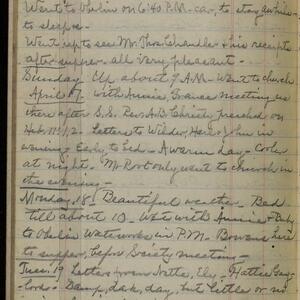 Went to Oberlin on 6:40 P.M. car, to stay awhile
to sleep.
Went up to see Mr. Thos. Chandler this
after supper - all very pleasant.
Sunday Up about 7 A.M. Went to church
April 17 with Annie, Frances meeting us
there after S.S. Rev. A.B. Christy preached on
Heb. 11:1,2. Letters to Wilder, Helen, John in
evening Early to bed - A warm day - Cooler
at night. Mr Root only went to church in
the evening -
Monday, 18 - Beautiful weather. Bed
till about 10 - Went with Annie
to Oberlin Waterworks in P.M. - Bowens here
to supper, before Society meeting -
Tues. 19 Letters from Nette, Hattie
Damp, dark, day, but little or no